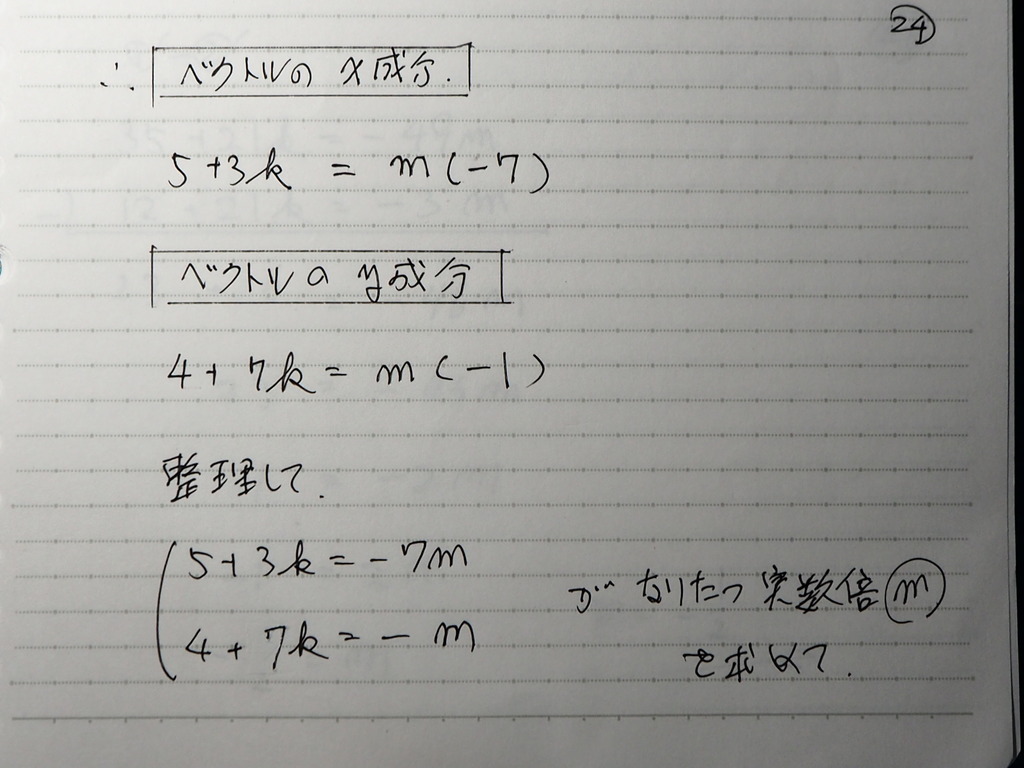 24
∴ ベクトルの x成分.
5+3k = m(-7)
ベクトルの y成分
4+7k = m(-1)
整理して.
5+3k = -7m
がなりたつ実数倍m
4+7k = -m
を求めて.